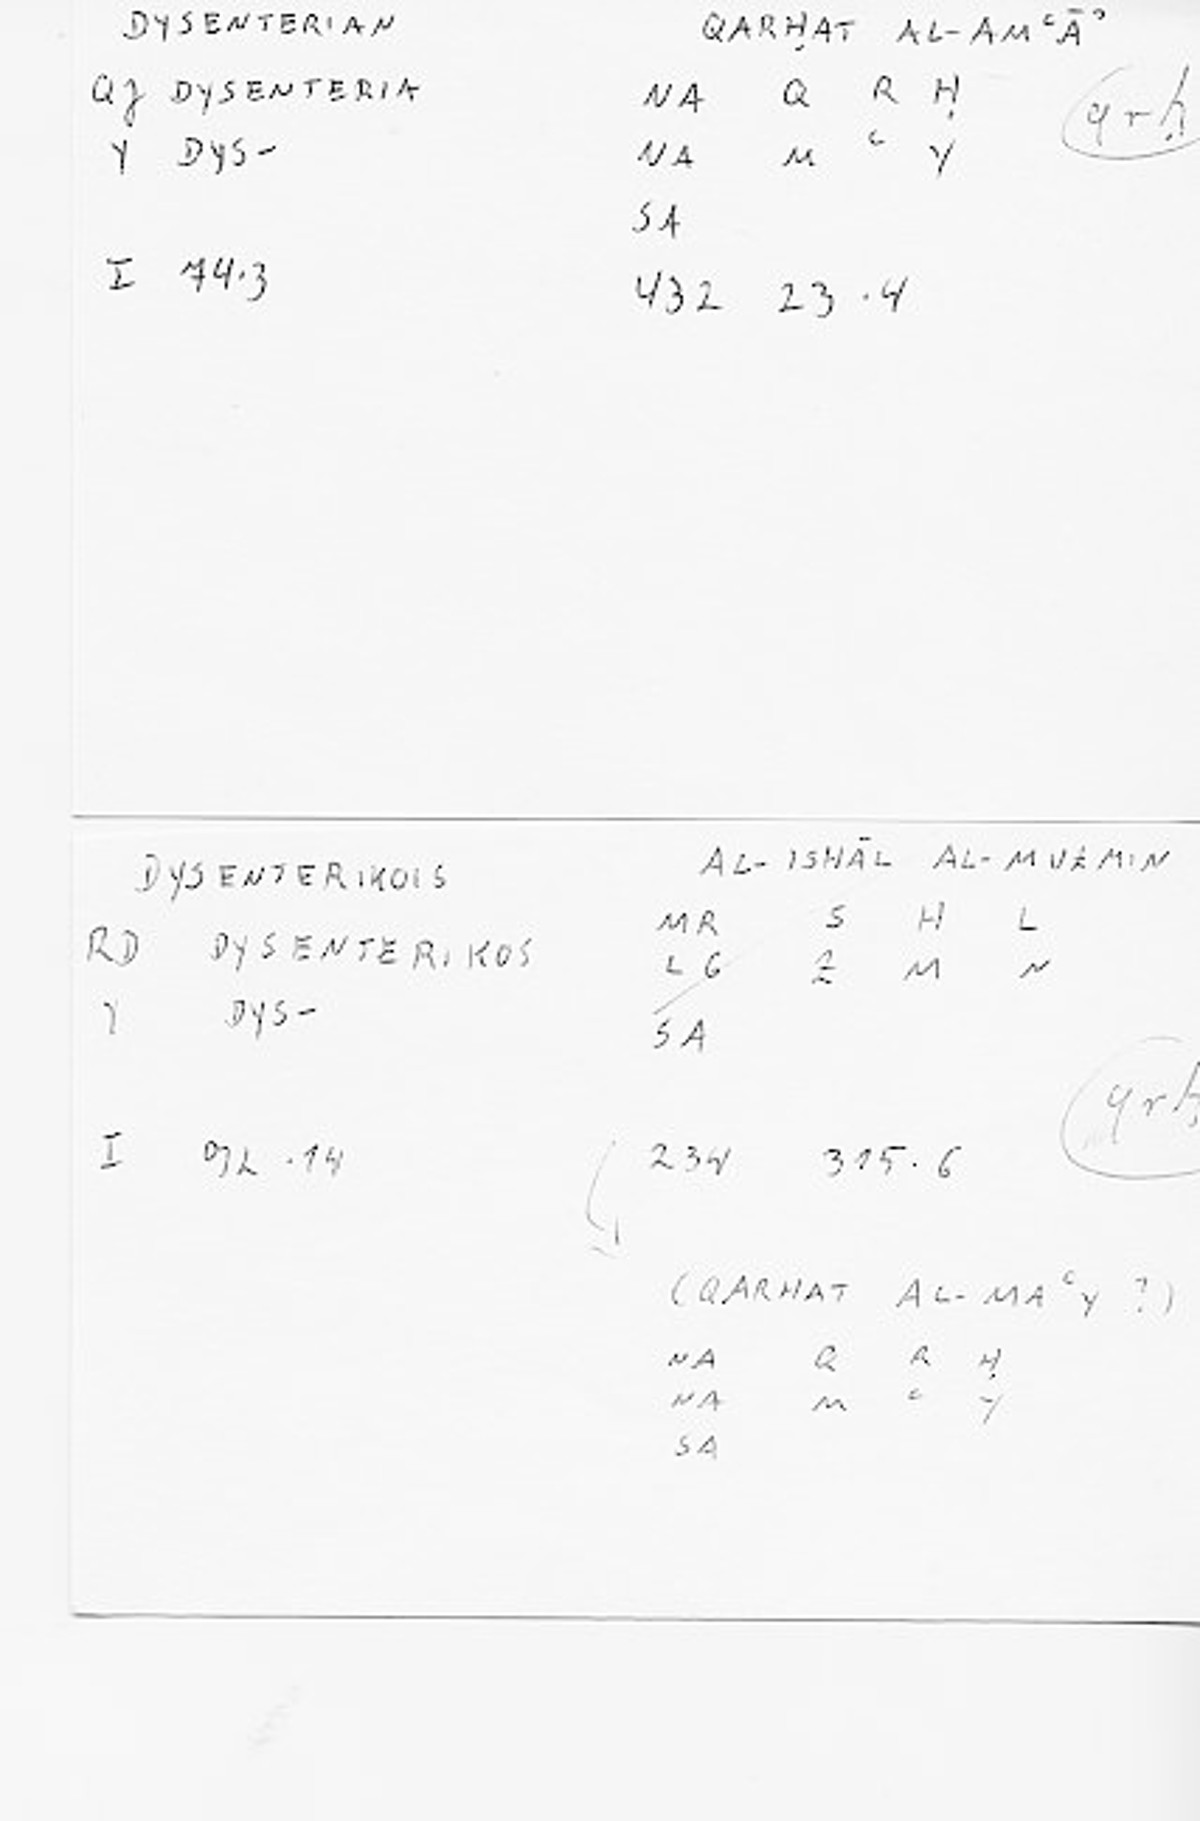 DYSENTERIAN QARḤAT AL-AMʿĀʾ
QJ DYSENTERIA NA Q R Ḥ qrḥ
Y DYS- NA M ʿ Y
SA
I 74.3 432 23.4
DYSENTERIKOIS AL-ISHĀL AL-MUZMIN
RD DYSENTERIKOS MR S H L
LG Z M N
Y DYS- SA
qrḥ
I 92.14 234 315.6
(QARHAT AL-MAʿY ?)
NA Q R Ḥ
NA M ʿ Y
SA